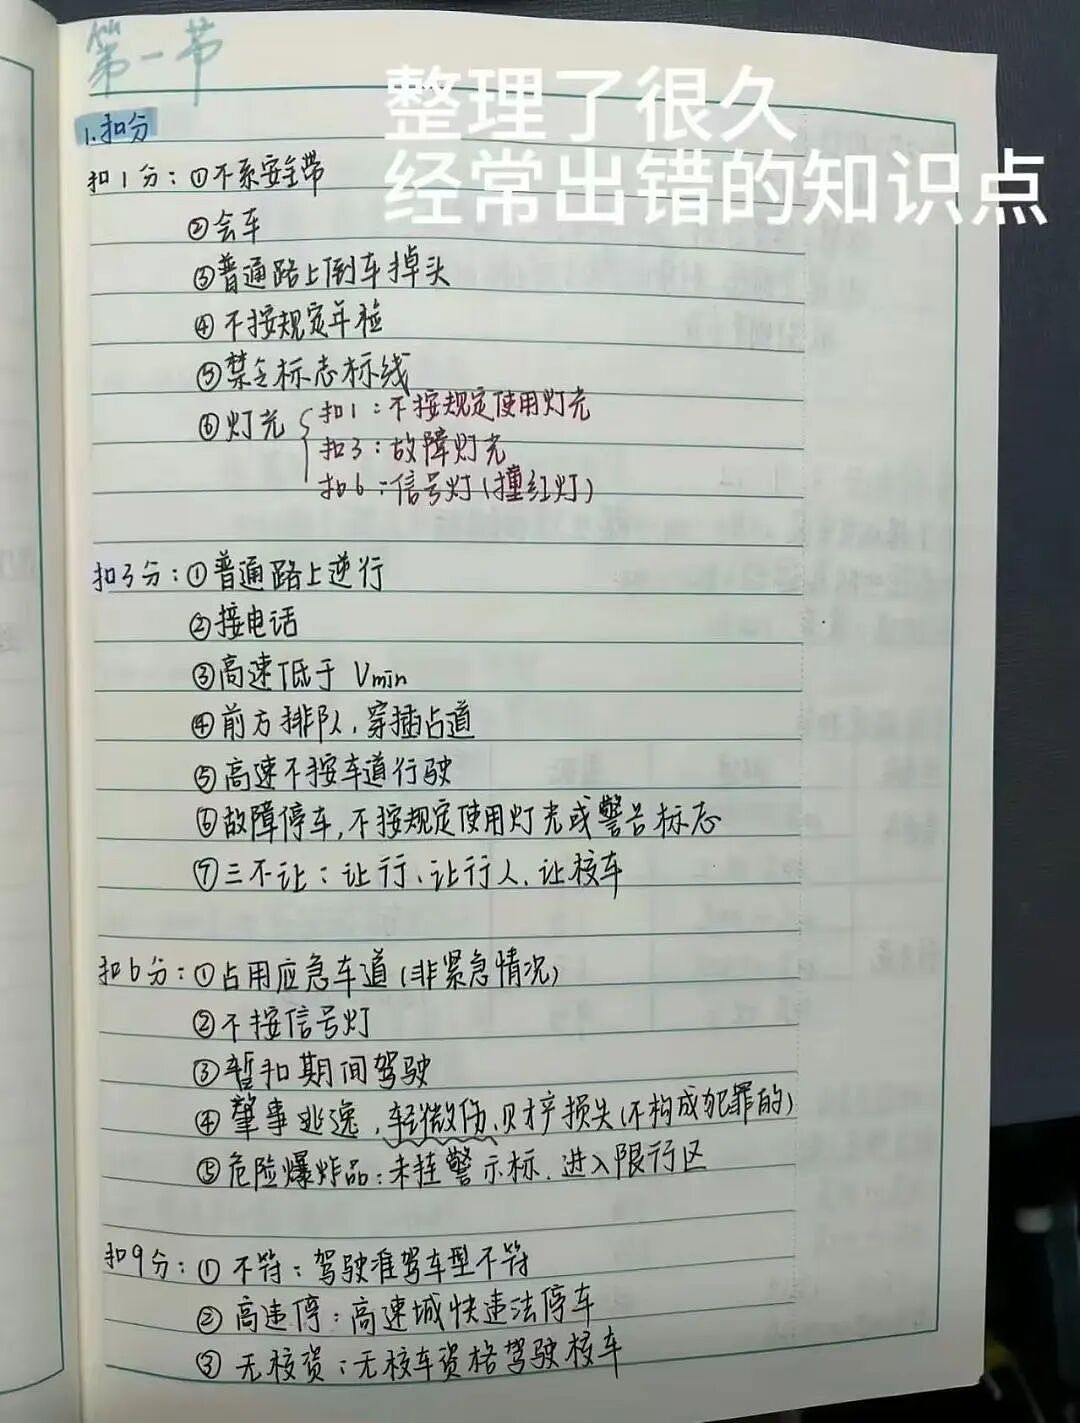 第一节
整理了很久
经常出错的知识点
1.扣分
扣1分：①不系安全带
②会车
③普通路上倒车掉头
④不按规定年检
⑤禁令标志标线
⑥灯光
扣1：不按规定使用灯光
扣3：故障灯光
扣6：信号灯（撞红灯）
扣3分：①普通路上逆行
②接电话
③高速低于 Vmin
④前方排队，穿插占道
⑤高速不按车道行驶
⑥故障停车，不按规定使用灯光或警告标志
⑦三不让：让行、让行人、让校车
扣6分：①占用应急车道（非紧急情况）
②不按信号灯
③暂扣期间驾驶
④肇事逃逸，轻微伤、财产损失（不构成犯罪的）
⑤危险爆炸品：未挂警示标、进入限行区
扣9分：①不符：驾驶准驾车型不符
②高违停：高速城快违法停车
③无校资：无校车资格驾驶校车